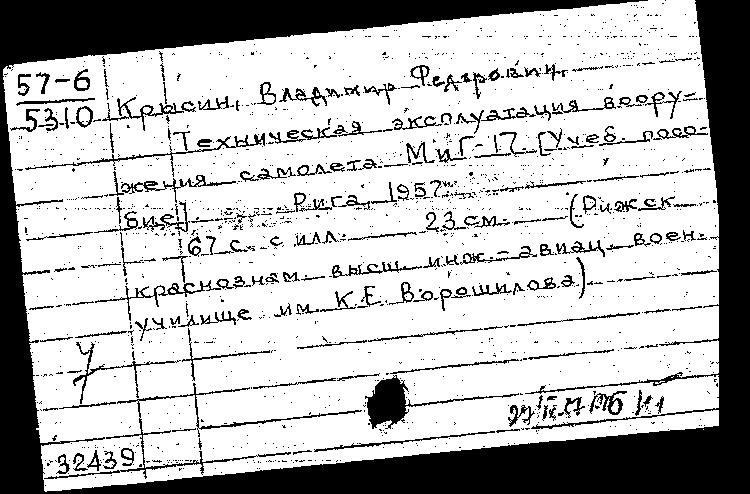 57-6
5310
Крысин, Владимир Федорович.
Техническая эксплуатация воору-
жения самолета МиГ-17. [Учеб. посо-
бие].  Рига, 1957.
67 с. с илл.  23 см.  (Рижск
краснознам. высш. инж.-авиац. воен.
училище им. К.Е. Ворошилова)
32439